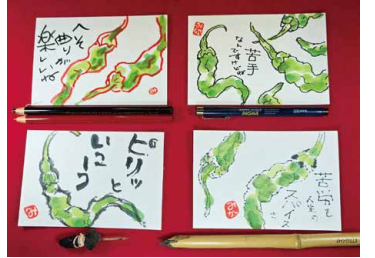 へそ
曲りが
楽しいね
苦手
なんですけどね
ピリッ
と
いこう
苦労も
人生の
スパイス
さ